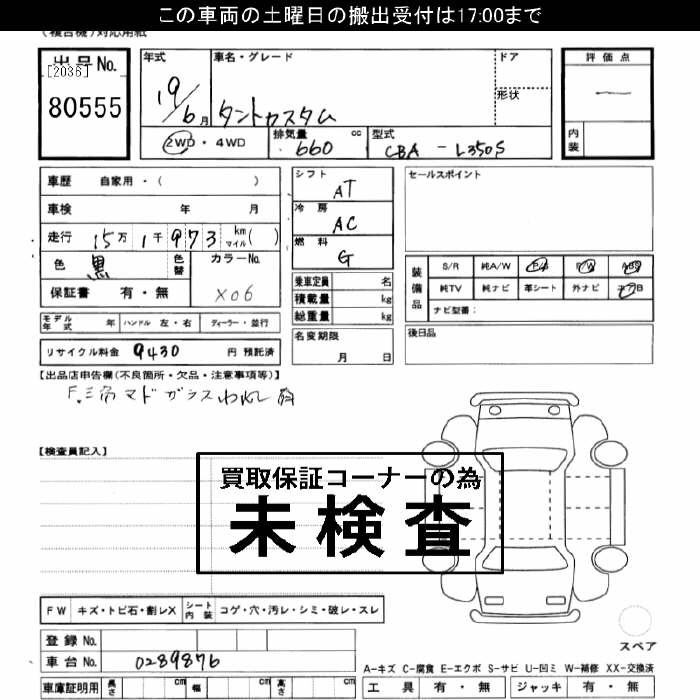 この車両の土曜日の搬出受付は17:00まで
(複合機)対応用紙
出品No.
[2036]
80555
年式
19/6月
車名・グレード
タントカスタム
ドア
形状
2WD・4WD
排気量
660 cc
型式
CBA - L350S
評価点
一
内装
車歴 自家用・( )
車検 年 月
走行 15万 1千 973 km マイル( )
色 黒 色替
カラーNo.
X06
保証書 有・無
モデル年式 年 ハンドル 左・右 ディーラー・並行
リサイクル料金 9430 円 預託済
シフト
AT
冷房
AC
燃料
G
乗車定員 名
積載量 kg
総重量 kg
名変期限
月 日
セールスポイント
装備品
S/R 純A/W P/S P/W ABS
純TV 純ナビ 革シート 外ナビ エアB
ナビ型番:
後日品
【出品店申告欄(不良箇所・欠品・注意事項等)】
マドガラスわれし
【検査員記入】
買取保証コーナーの為
未検査
FW キズ・トビ石・割レX シート内装 コゲ・穴・汚レ・シミ・破レ・スレ
登録No.
車台No. 0289876
車庫証明用 長さ cm 幅 cm 高さ cm
スペア
A-キズ C-腐食 E-エクボ S-サビ U-凹ミ W-補修 XX-交換済
工具 有・無 ジャッキ 有・無